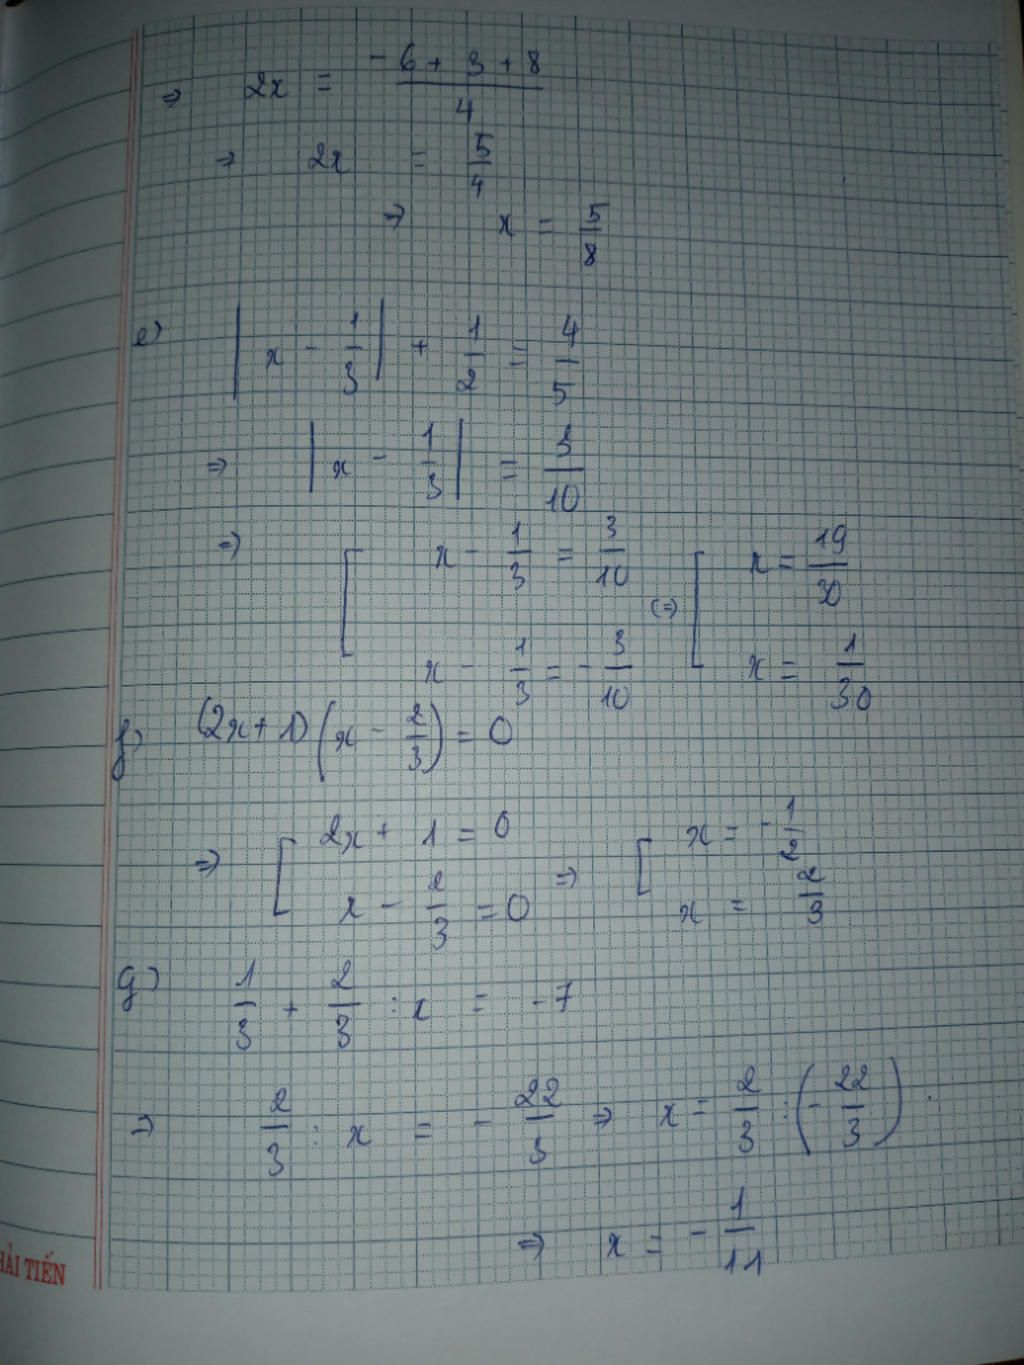 ⇒ 2x = (-6 + 3 + 8)/4
⇒ 2x = 5/4
⇒ x = 5/8
e) |x - 1/3| + 1/2 = 4/5
⇒ |x - 1/3| = 3/10
⇒ [ x - 1/3 = 3/10 (=) [ x = 19/30
x - 1/3 = - 3/10 x = 1/30
f) (2x + 1)(x - 2/3) = 0
⇒ [ 2x + 1 = 0 ⇒ [ x = - 1/2
x - 2/3 = 0 x = 2/3
g) 1/3 + 2/3 : x = -7
⇒ 2/3 : x = - 22/3 ⇒ x = 2/3 : (- 22/3)
⇒ x = - 1/11
HẢI TIẾN